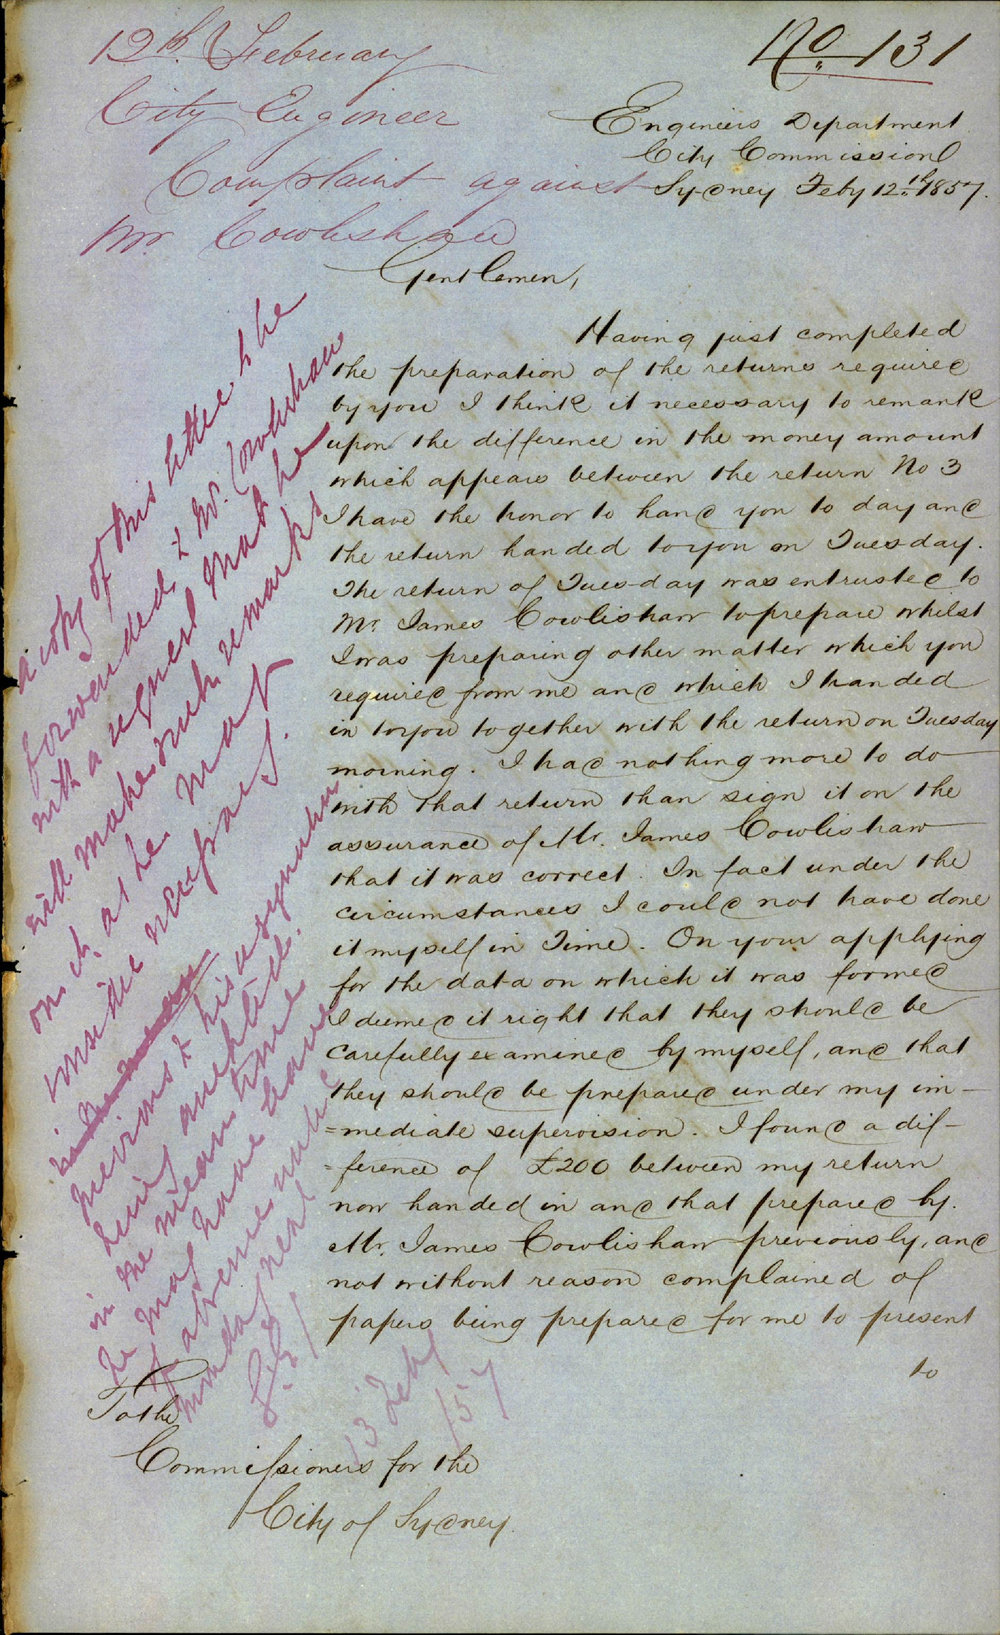 12th. February
City Engineer
Complaint against
Mr. Cowlishaw
No. 131
Engineers Department
City Commission
Sydney Feby 12th. 1857.
Gentlemen,
Having just completed
the preparation of the returns required
by you I think it necessary to remark
upon the difference in the money amount
which appears between the return No 3
I have the honor to hand you to day and
the return handed to you on Tuesday.
The return of Tuesday was entrusted to
Mr. James Cowlishaw to prepare whilst
I was preparing other matter which you
required from me and which I handed
in to you together with the return on Tuesday
morning. I had nothing more to do
with that return than sign it on the
assurance of Mr. James Cowlishaw
that it was correct. In fact under the
circumstances I could not have done
it myself in Time. On your applying
for the data on which it was formed
I deemed it right that they should be
carefully examined by myself, and that
they should be prepared under my im-
=mediate supervision. I found a dif-
=ference of £200 between my return
now handed in and that prepared by.
Mr. James Cowlishaw previously, and
not without reason complained of
papers being prepared for me to present
to
To the
Commissioners for the
City of Sydney.
a copy of this letter to be
forwarded to Mr. Cowlishaw
with a request that he
will make such remarks
on it as he may
consider necessary.
previous to his resignation
being
in the mean time
he may have leave
of absence until
Monday next
13 Feby
/57